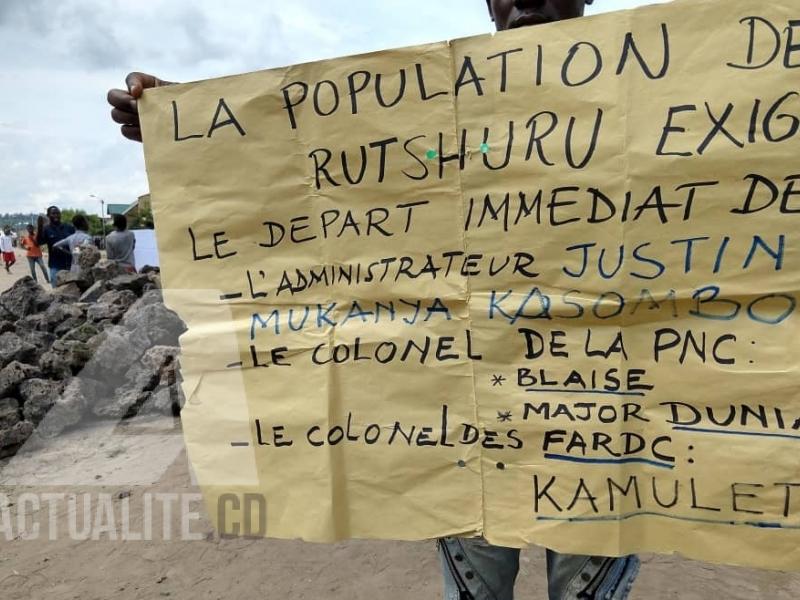 LA POPULATION DE
RUTSHURU EXIG
LE DEPART IMMEDIAT DE
- L'ADMINISTRATEUR JUSTIN
MUKANYA KASOMBO
- LE COLONEL DE LA PNC:
* BLAISE
* MAJOR DUNIA
- LE COLONEL DES FARDC:
KAMULET
ACTUALITE.CD